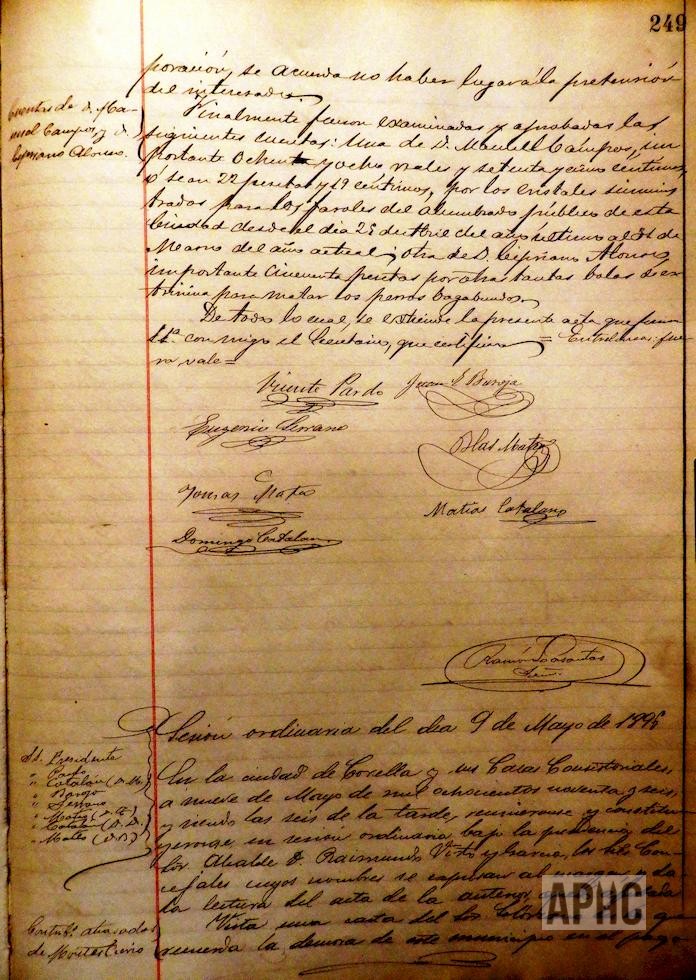 249
poración, se acuerda no haber lugar á la pretensión
del interesado.
Cuentas de D. Ma-
nuel Campos y D.
Cipriano Alonso.
Finalmente fueron examinadas y aprobadas las
siguientes cuentas: Una de D. Manuel Campos, im
portante ochenta y ocho reales y setenta y cinco céntimos
ó sean 22 pesetas y 19 céntimos, por los cristales suminis
trados para los faroles del alumbrado público de esta
Ciudad desde el dia 25 de Abril del año último al 31 de
Marzo del año actual; otra de D. Cipriano Alonso
importante cincuenta pesetas por otras tantas bolas de es
tricnina para matar los perros vagabundos.
De todo lo cual, se extiende la presente acta que firman
SS.ª con migo el Secretario, que certifico = Entrelíneas: fue
ra vale =
Vicente Pardo Juan S Burgo
Eugenio Serrano
Blas Mateo
Tomas Mateo
Matias Catalano
Domingo Catalan
Ramón
Srio.
Sesión ordinaria del dia 9 de Mayo de 1896
SS. Presidente
" Pardo
" Catalan (D. M.)
" Burgo
" Serrano
" Mateo (D. T.)
" Catalan (D. D.)
" Mateo (D. B.)
En la ciudad de Corella y sus Casas Consistoriales,
a nueve de Mayo de mil ochocientos noventa y seis,
y siendo las seis de la tarde, reunieronse y constitu
yeronse, en sesión ordinaria bajo la presidencia del
Sor. Alcalde D. Raimundo y Garcia, los SS. Con
cejales cuyos nombres se expresan al margen y da
la lectura del acta de la anterior,
Vista una carta del Sor. que
recuerda la demora de este municipio en el pago
Contribs. atrasados
de Montes Cierzo
APHC